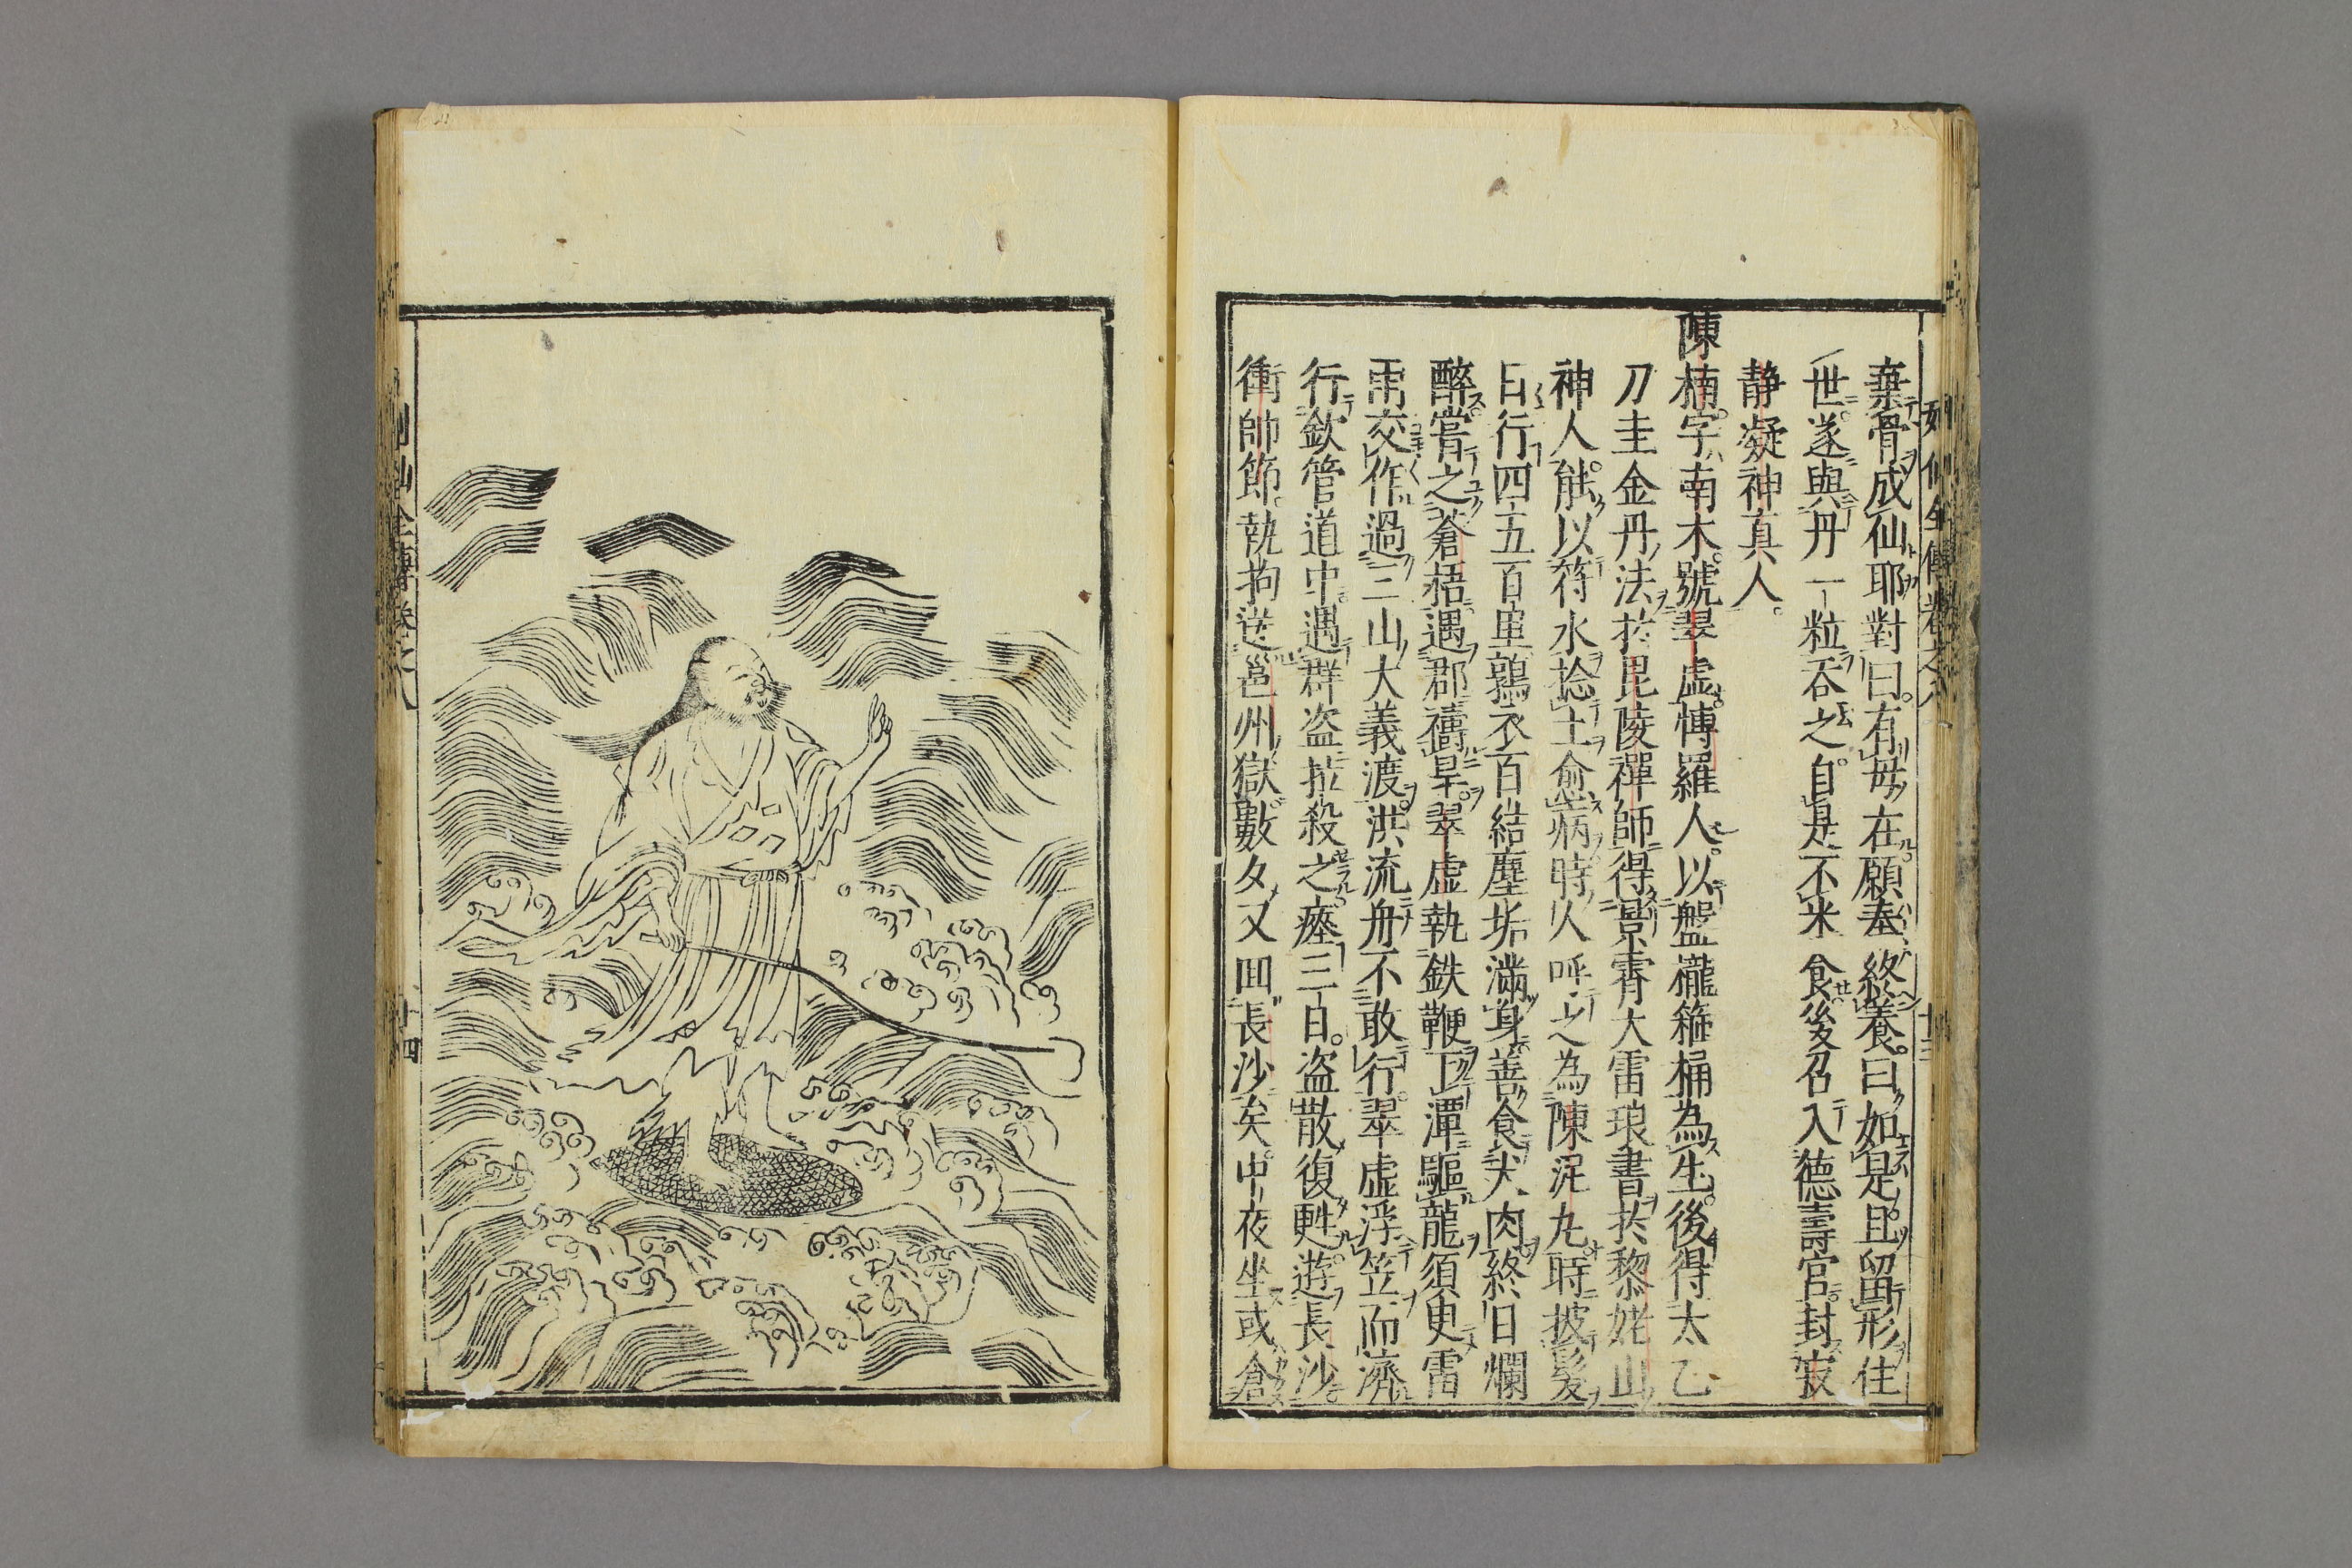 列仙全傳卷之八 十三
棄骨成仙耶對曰有母在願奉終養曰如是且留形住
世遂與丹一粒吞之自是不米食後召入德壽宮封寂
静凝神真人
陳楠字南木號翠虛愽羅人以盤櫳箍桶為生後得太乙
刀圭金丹法於毘陵禪師得景霄大雷琅書於黎姥山
神人能以符水捻土愈病時人呼之為陳泥丸時披髮
日行四五百里鶉衣百結塵垢滿身善食犬肉終日爛
醉嘗之蒼梧遇郡禱旱翠虛執鉄鞭下潭驅龍須臾雷
雨交作過三山大義渡洪流舟不敢行翠虛浮笠而濟
行欽管道中遇群盜拉殺之瘞三日盜散復甦遊長沙
衝帥節執拘送邕州獄數夕又回長沙矣中夜坐或倉
列仙全傳卷之八 十四